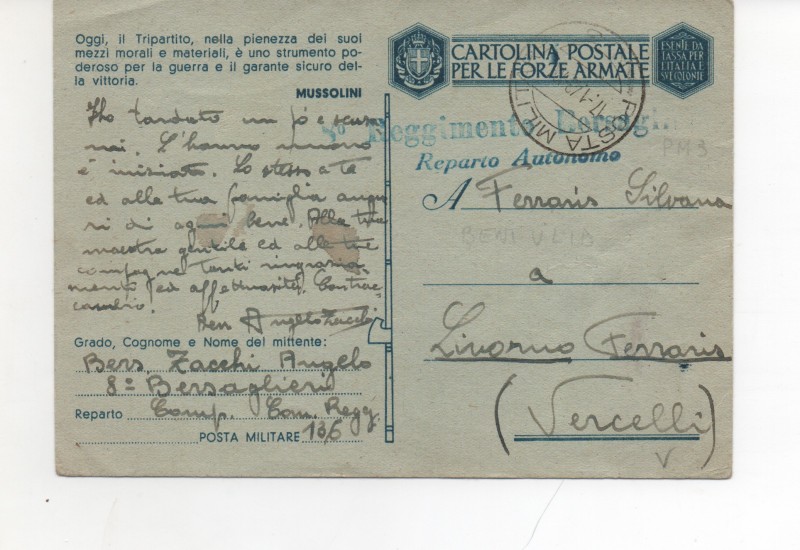 Oggi, il Tripartito, nella pienezza dei suoi
mezzi morali e materiali, è uno strumento po-
deroso per la guerra e il garante sicuro del-
la vittoria.
MUSSOLINI
Ho tardato un pò e scusa-
mi. L'hanno nuovo
è iniziato. Lo stesso a te
ed alla tua famiglia augu-
ri di ogni bene. Alla tua
maestra gentile ed alle tue
compagne tanti ringrazia-
mento ed affettuosità. Contrac-
cambio.
Bers Angelo Zacchi
Grado, Cognome e Nome del mittente:
Bers. Zacchi Angelo
8º Bersaglieri
Reparto Comp. Com. Regg.
POSTA MILITARE 136
CARTOLINA POSTALE
PER LE FORZE ARMATE
ESENTE DA
TASSA PER
L'ITALIA E
SUE COLONIE
POSTA MILIT
Reggimento Bersagl
Reparto Autonomo
PM 3
A Ferraris Silvana
a
Livorno Ferraris
(Vercelli)
V